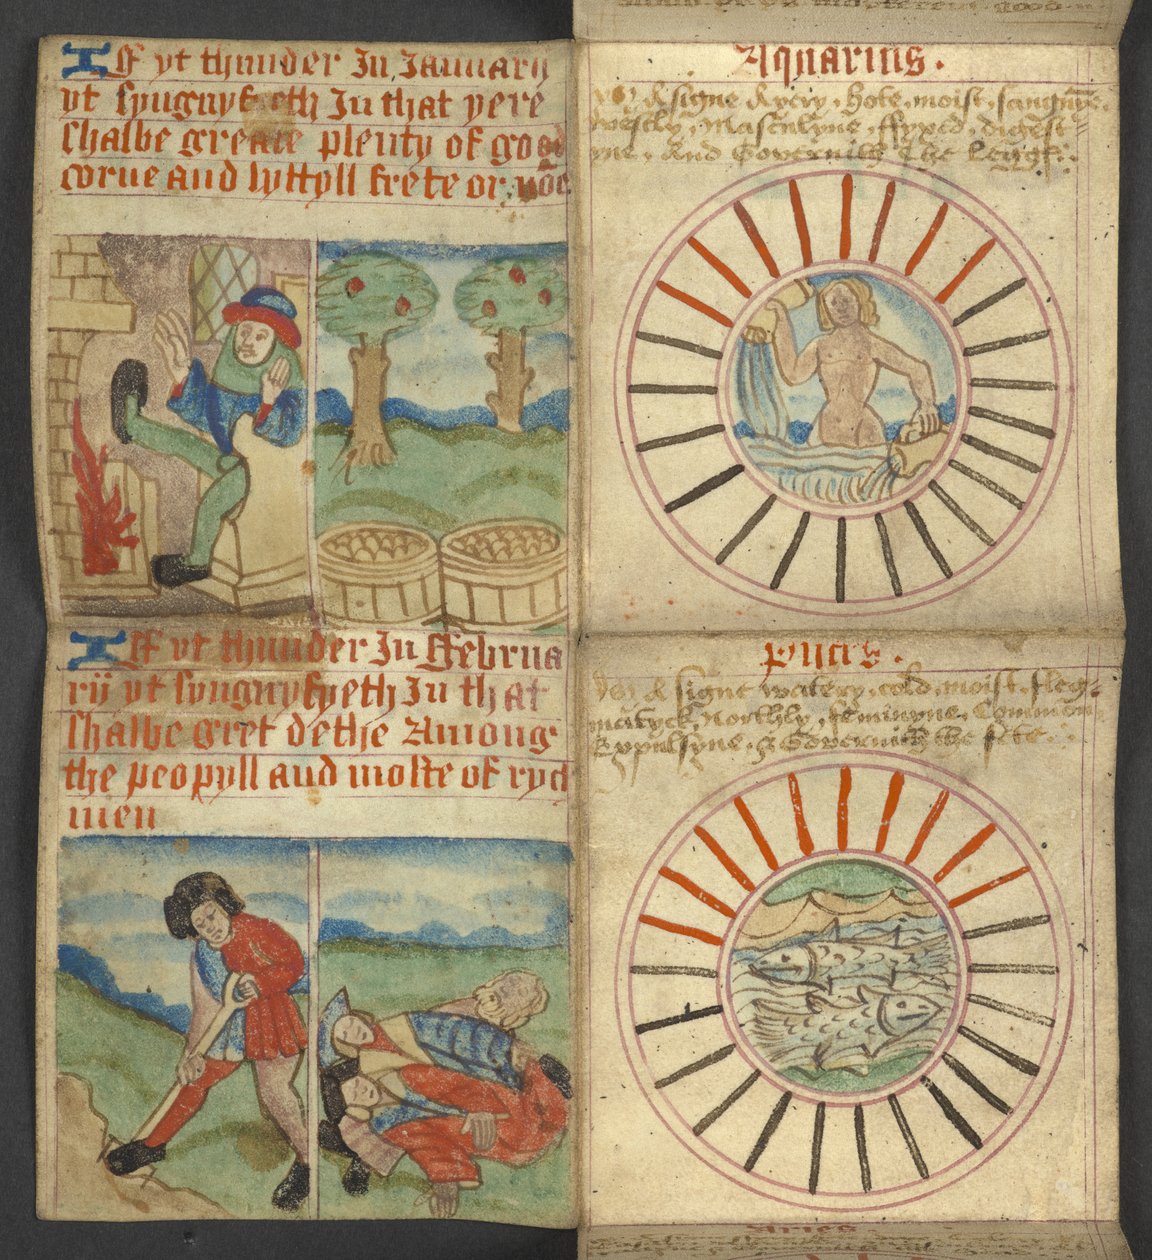 If yt thunder In January
yt sygnyfyeth In that yere
shalbe greate plenty of good
corne and lyttyll frete or
Aquarius.
a signe Ayery, hote, moist, sanguyne.
westly, Masculyne, ffyxed, digest
yne, And Governith the legges.
If yt thunder In ffebrua
rij yt syngnyfyeth In that
shalbe gret dethe Among
the peopyll and moste of rych
men
pyscis.
a signe watery, cold, moist, fleg-
matyck Northly, feminyne, Common
Expulsyne, & Governith the fete.
Aries